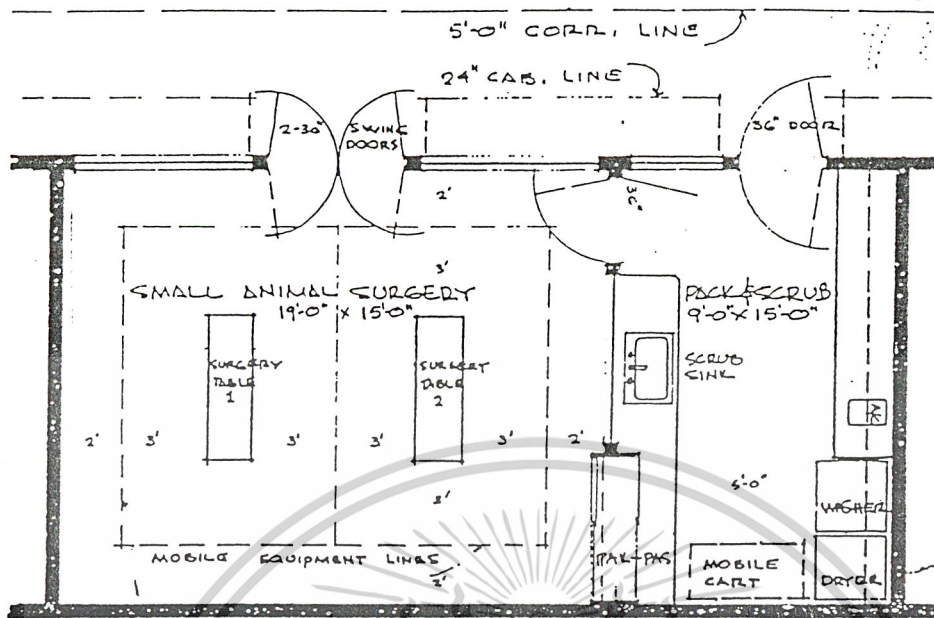 5'-0" CORR. LINE
24" CAB. LINE
2-30"
SWING
DOORS
36" DOOR
2'
3'
SMALL ANIMAL SURGERY
19'-0" x 15'-0"
PACK & SCRUB
9'-0" x 15'-0"
SURGERY
TABLE
1
SURGERY
TABLE
2
SCRUB
SINK
2'
3'
3'
3'
3'
2'
3'
5'-0"
WASHER
MOBILE EQUIPMENT LINES
2'
PAK-PAS
MOBILE
CART
DRYER